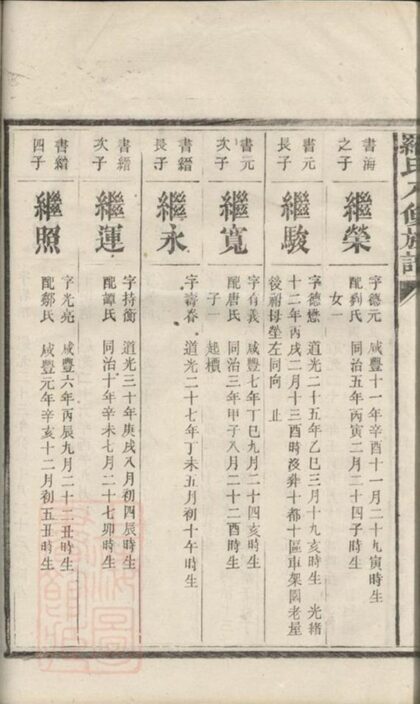 羅氏八修族譜
書海
之子
繼榮
字德元 咸豐十一年辛酉十一月二十九寅時生
配劉氏 同治五年丙寅二月二十四子時生
女一
書元
長子
繼駿
字德懋 道光二十五年乙巳三月十九亥時生 光緒
十二年丙戌二月十三酉時沒葬十都十區車架園老屋
後祖母塋左同向 止
書元
次子
繼寬
字有義 咸豐七年丁巳九月二十四亥時生
配唐氏 同治三年甲子八月二十二酉時生
子一 起櫃
書縉
長子
繼永
字壽春 道光二十七年丁未五月初十午時生
書縉
次子
繼運
字持衡 道光三十年庚戌八月初四辰時生
配譚氏 同治十年辛未七月二十七卯時生
書縉
四子
繼照
字光亮 咸豐六年丙辰九月二十二丑時生
配鄒氏 咸豐元年辛亥十二月初五丑時生